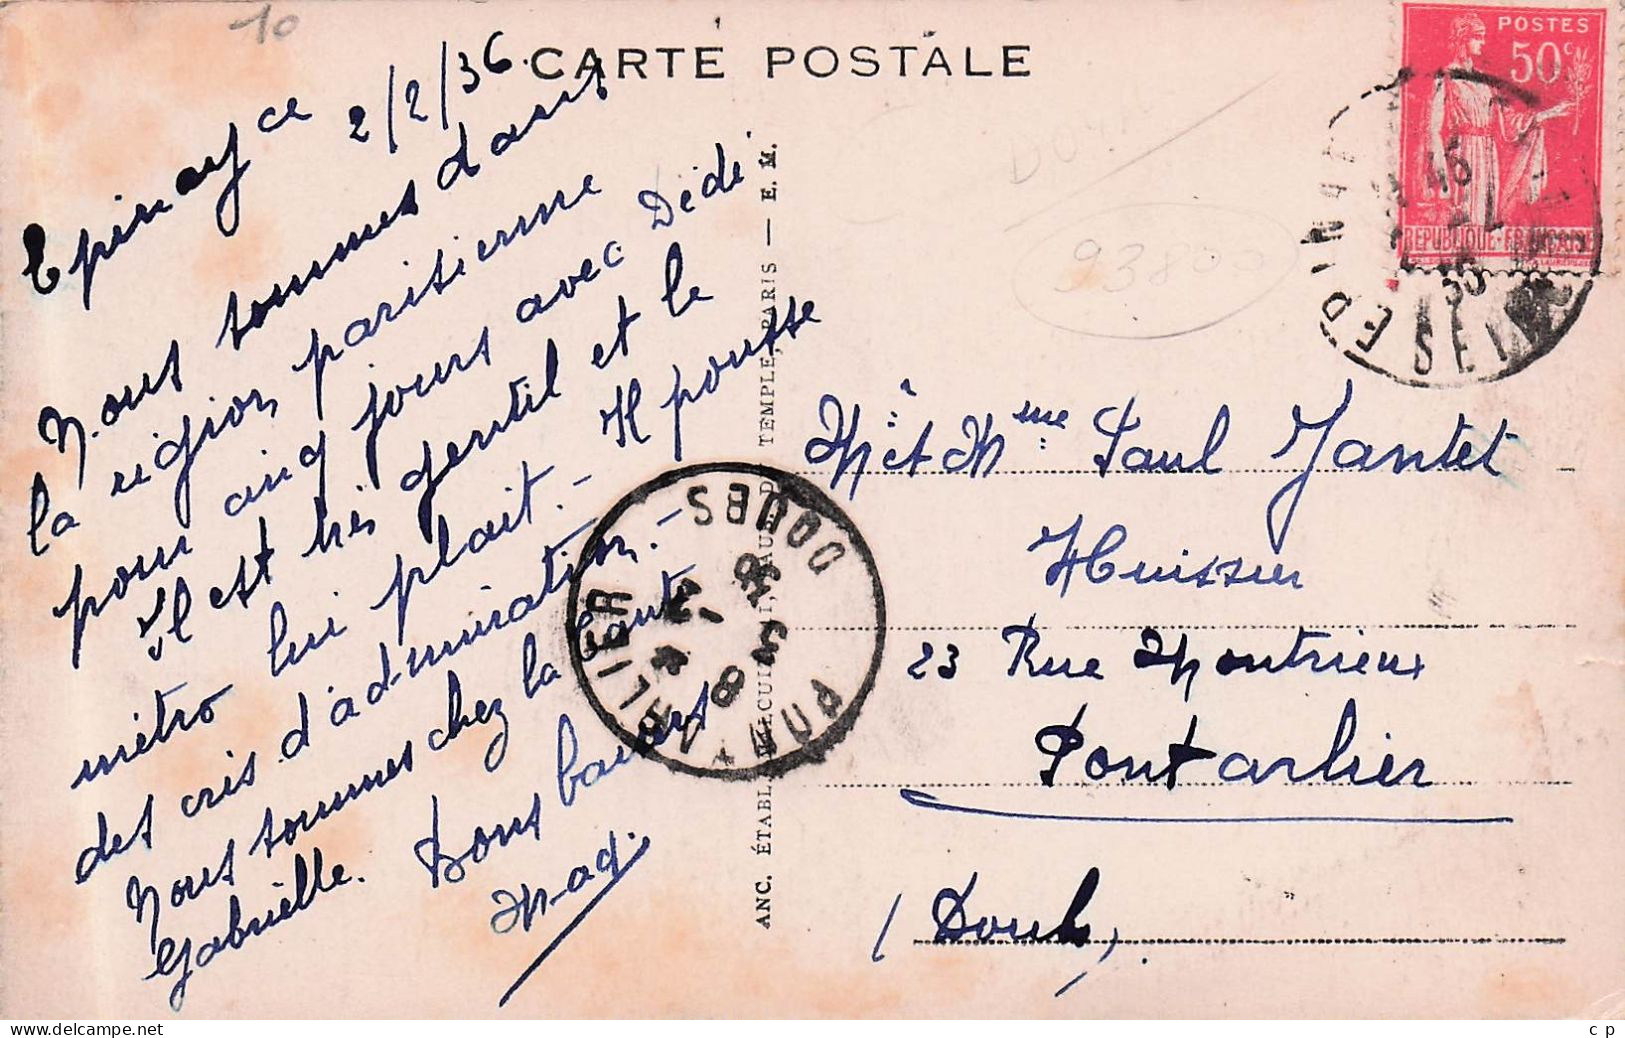 10
CARTE POSTALE
Epinay ce 2/2/36.
Nous sommes dans
la région parisienne
pour cinq jours avec Dédé
Il est très gentil et le
métro lui plait. - Il pousse
des cris d'admiration. -
Nous sommes chez la tante
Gabrielle. Bons baisers
Mag.
ANC. ÉTABL.
TEMPLE, PARIS — E. M.
93800
POSTES
50c
REPUBLIQUE FRANCAISE
EPINAY
SEINE
PONTARLIER
DOUBS
Mr et Mme Paul Jantet
Huissier
23 Rue Montrieux
Pontarlier
(Doubs)
c p
www.delcampe.net